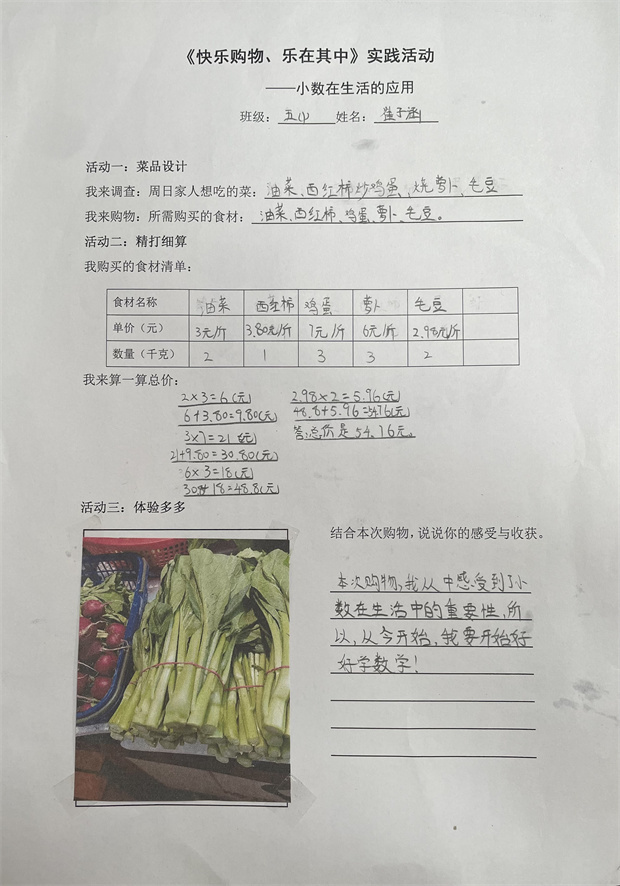 《快乐购物、乐在其中》实践活动
——小数在生活的应用
班级：五(1) 姓名：崔子涵
活动一：菜品设计
我来调查：周日家人想吃的菜：油菜、西红柿炒鸡蛋、烧萝卜、毛豆
我来购物：所需购买的食材：油菜、西红柿、鸡蛋、萝卜、毛豆。
活动二：精打细算
我购买的食材清单：
食材名称 油菜 西红柿 鸡蛋 萝卜 毛豆
单价（元） 3元/斤 3.80元/斤 7元/斤 6元/斤 2.98元/斤
数量（千克） 2 1 3 3 2
我来算一算总价：
2×3=6(元) 2.98×2=5.96(元)
6+3.80=9.80(元) 48.8+5.96=54.76(元)
3×7=21(元) 答:总价是54.76元。
21+9.80=30.80(元)
6×3=18(元)
30.8+18=48.8(元)
活动三：体验多多
结合本次购物，说说你的感受与收获。
本次购物，我从中感受到了小
数在生活中的重要性，所
以，从今开始，我要开始好
好学数学！